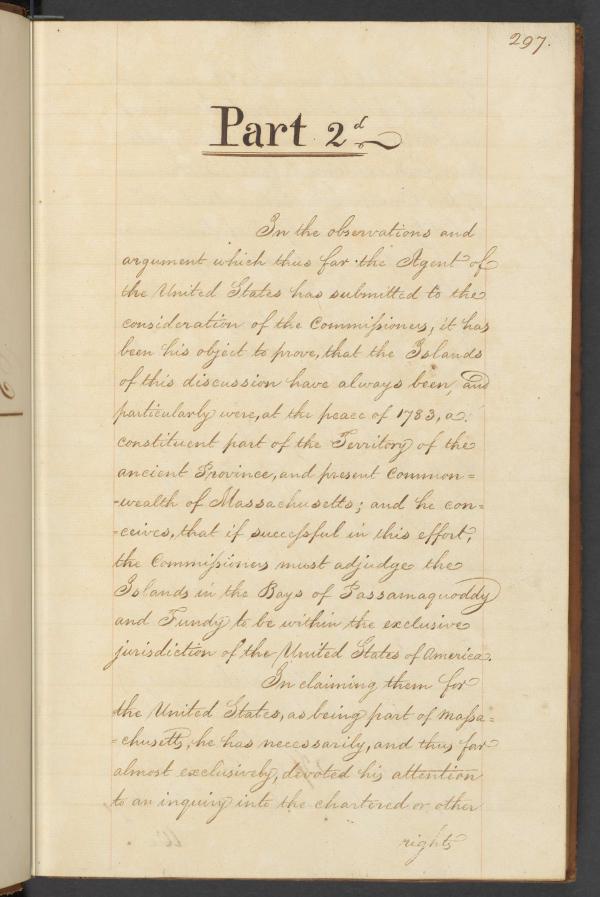 297.
Part 2d
In the observations and
argument which thus far the Agent of
the United States has submitted to the
consideration of the Commissioners, it has
been his object to prove, that the Islands
of this discussion have always been, and
particularly were, at the peace of 1783, a
constituent part of the Territory of the
ancient Province, and present Common=
=wealth of Massachusetts; and he con=
=ceives, that if successful in this effort,
the Commissioners must adjudge the
Islands in the Bays of Passamaquoddy
and Fundy to be within the exclusive
jurisdiction of the United States of America.
In claiming them for
the United States, as being part of Massa=
=chusetts, he has necessarily, and thus far
almost exclusively, devoted his attention
to an inquiry into the chartered or other
rights